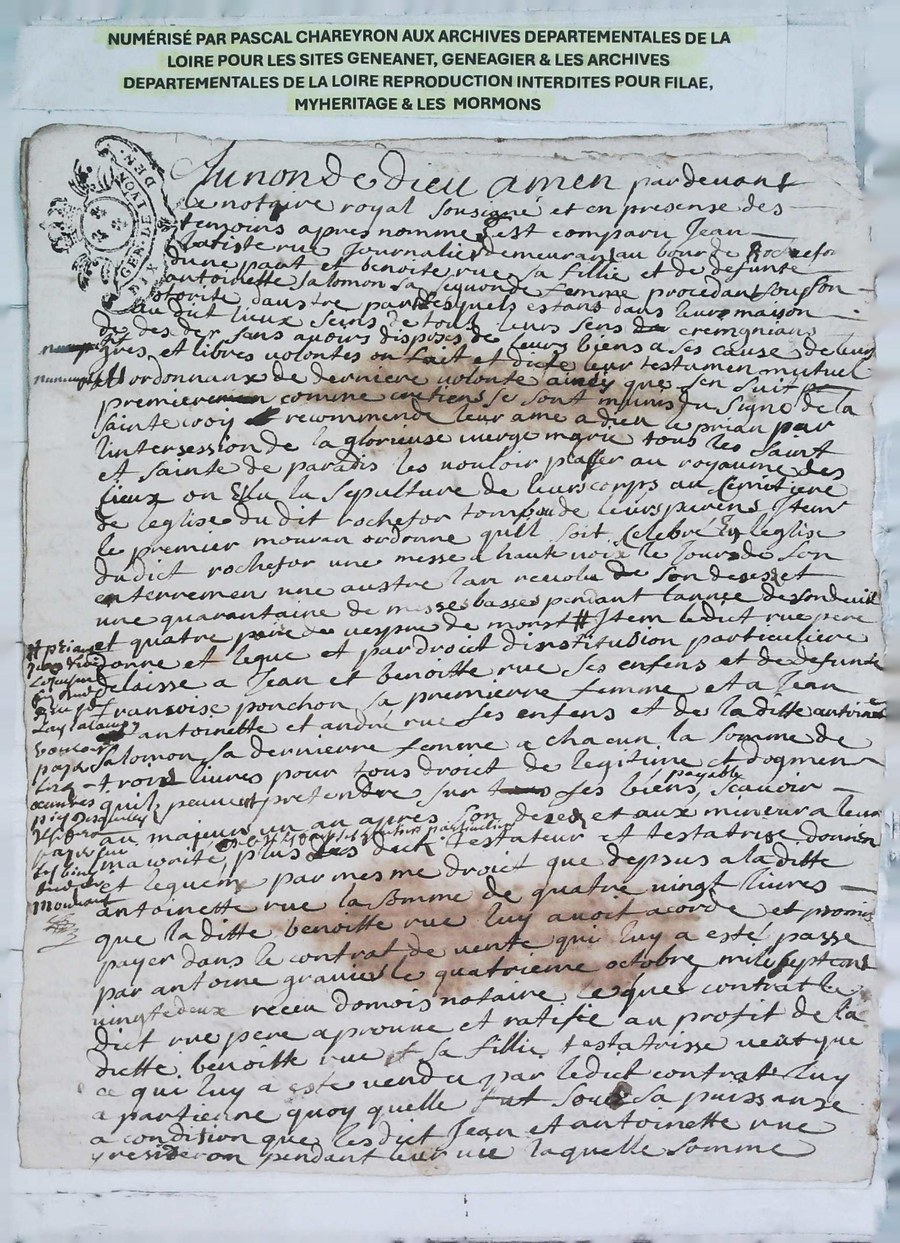 NUMÉRISÉ PAR PASCAL CHAREYRON AUX ARCHIVES DEPARTEMENTALES DE LA
LOIRE POUR LES SITES GENEANET, GENEAGIER & LES ARCHIVES
DEPARTEMENTALES DE LA LOIRE REPRODUCTION INTERDITES POUR FILAE,
MYHERITAGE & LES MORMONS
GEN. DE LYON
DIX DEN.
Au non de dieu amen par devant
le notaire royal sousigné et en presense des
temoins apres nomme est comparu Jean
batiste rue Journalier demeurant au bour de Rochefor
dune part et benoite rue sa fillie et de defunte
antoinette salomon sa segonde femme procedant sous son
otorite daustre part lesquels estans dans leur maison
du dit lieux seins de tous leurs sens
de des der sans avoirs disposes de leurs biens a ses cause de leur
gres et libres volontes on fait et dicte leur testamen mutuel
et ordonnanse de derniere volonte ainsy que sen suit
premieremen comme cretiens se sont munis du signe de la
sainte croix recommende leur ame a dieu le prian par
lintersession de la glorieuse vierge marie tous les saint
et sainte de paradis les vouloir plasser au royaume des
cieux on Elu la sepulture de leurs corps au semetiere
de leglise du dit rochefor tombau de leurs parens Item
le premier mouran ordonne quil soit celebré En leglise
dudict rochefor une messe a haute voix le Jour de son
enterremen une austre lan revolu de son deses et
une quarantaine de messes basses pendant lannee de son deuil
et quatre paire de vespre de mort # Item ledict rue pere
donne et legue et par droit dinstitution particuliere
delaisse a Jean et benoitte rue ses enfens et de defunte
francoise ponchon sa premierre femme et a Jean
antoinette et andré rue ses enfens et de la ditte antoinette
salomon sa dernierre femme a chacun la somme de
trois livres pour tous droit de legitime et dogmen
quil peuvent pretendre sur ses biens scavoir
payable
au majeur un an apres son deses et aux mineur a leur
majorité plus les dict testateur et testatrise donnen
et leguem par mesme droit que depsus a la ditte
antoinette rue la somme de quatre vingt livres
que la ditte benoitte rue luy avoit acorde et promis
payer dans le contrat de vente qui luy a esté passe
par antoine gravier le quatrieme octobre mil sept cent
vingt deux receu domois notaire lequel contrat le
dict rue pere aprouve et ratifie au profit de la
ditte benoitte rue sa fillie testatrisse veut que
ce qui luy a este vendu par ledict contrat luy
apartienne quoy quelle fut sous sa puissanse
a condision que lesdict Jean et antoinette rue
y resideron pendant leur vie laquelle somme